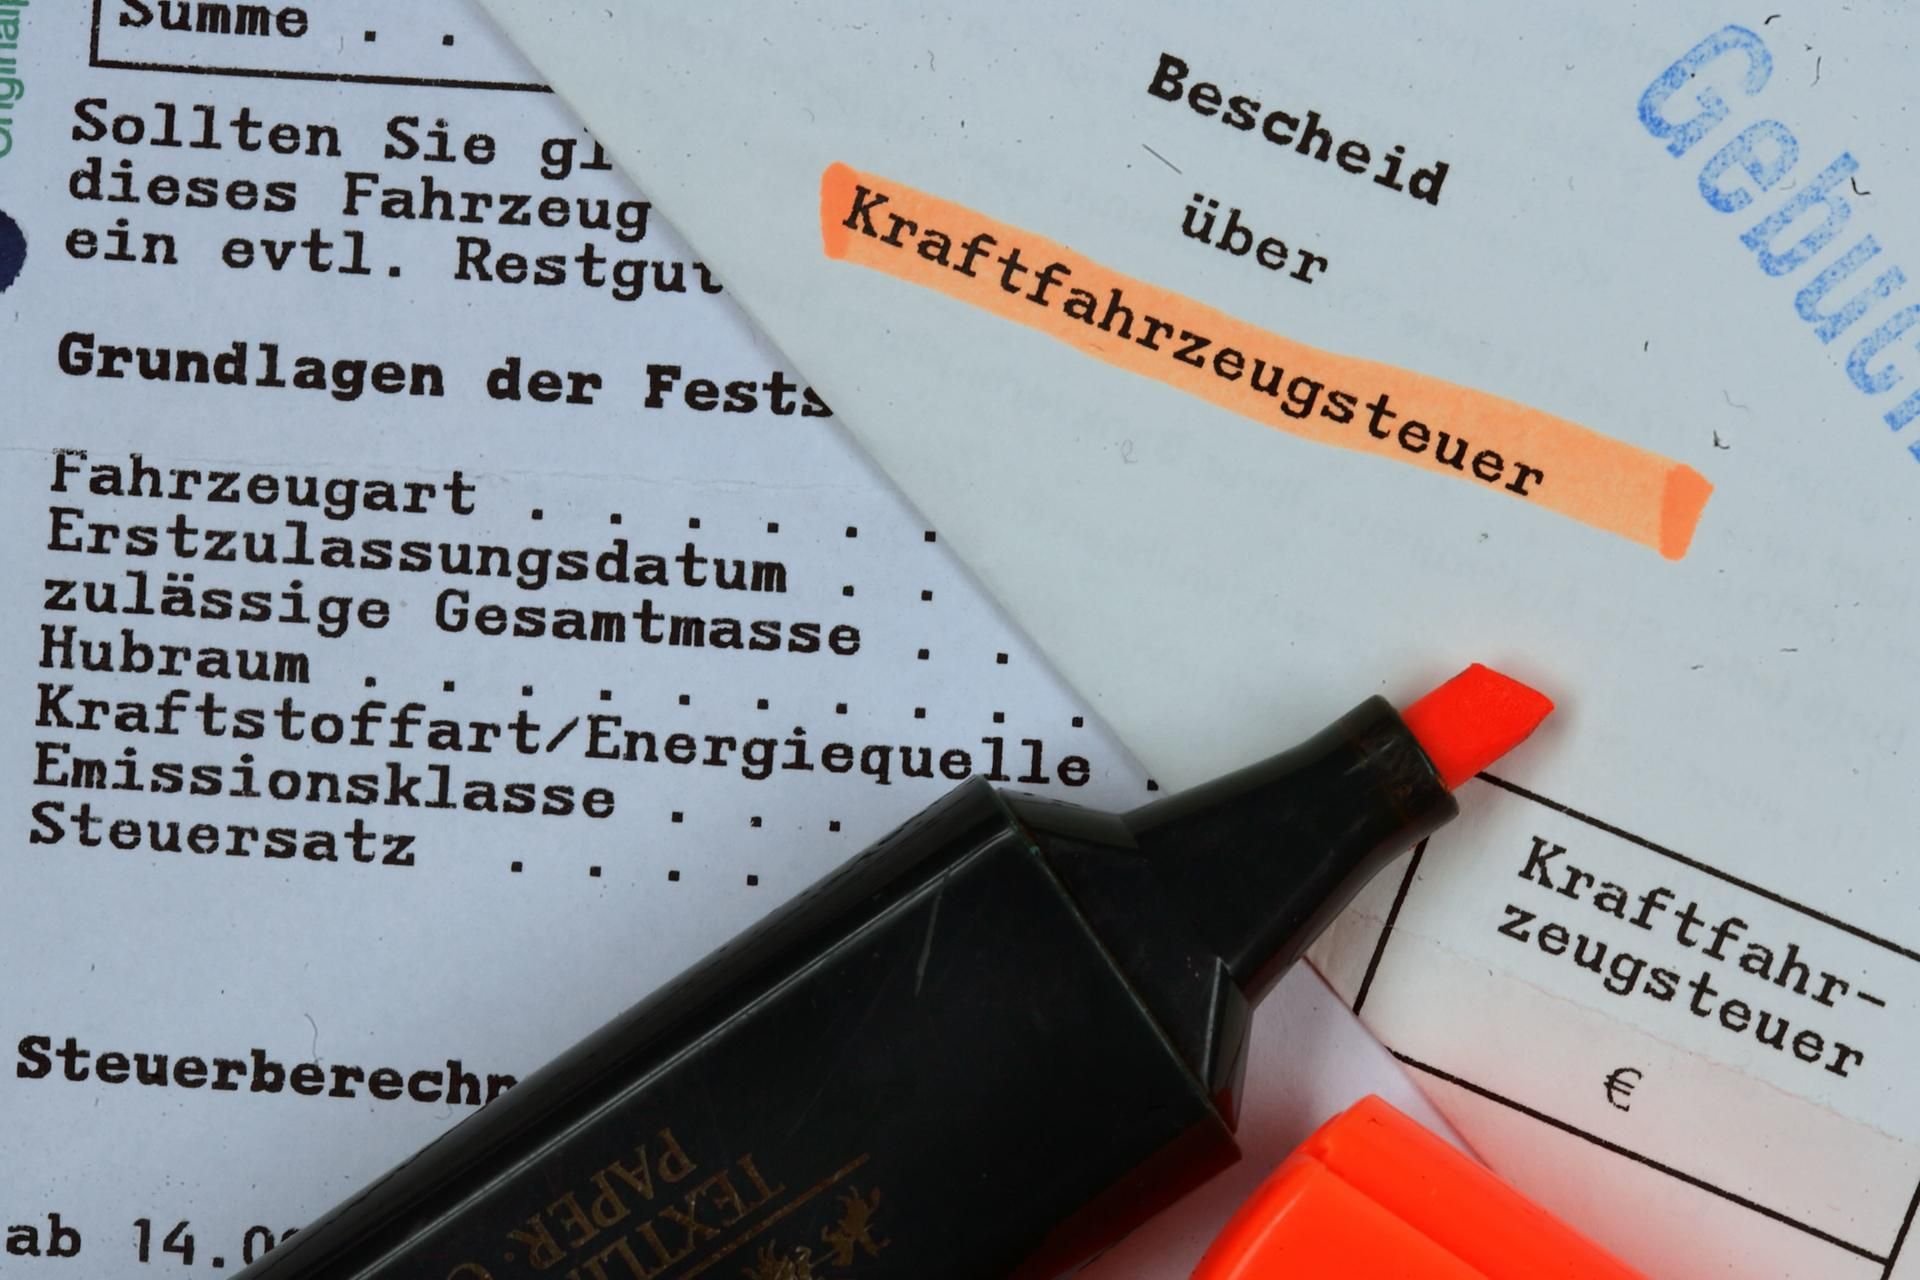 Summe . .
Sollten Sie
dieses Fahrzeug
ein evtl.
Grundlagen der
Fahrzeugart . . . . . .
Erstzulassungsdatum . .
zulässige Gesamtmasse . .
Hubraum . . . . . . . . . .
Kraftstoffart/Energiequelle .
Emissionsklasse . . .
Steuersatz . . . .
ab 14.
Bescheid
über
Kraftfahrzeugsteuer
Kraftfahr-
zeugsteuer
€
PAPER